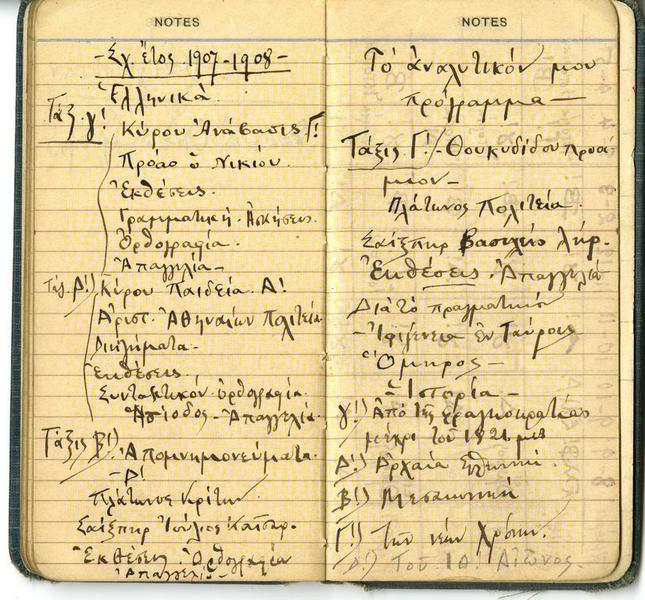 NOTES
- Σχ. ἔτος 1907-1908 -
Ἑλληνικά.
Τάξ. γ'. Κύρου Ἀνάβασις Γ!
Πρόοδ
Ἐκθέσεις.
Γραμματική. Ἀσκήσεις.
Ὀρθογραφία.
Ἀπαγγελία -
Τάξ. Α'.) Κύρου Παιδεία. Α!
Ἀριστ. Ἀθηναίων Πολιτεία
Διηγήματα.
Ἐκθέσεις.
Συντακτικόν. ὀρθογραφία.
Ἡσίοδος - Ἀπαγγελία.
Τάξις Β!) Ἀπομνημονεύματα.
- Δ!
Πλάτωνος Κρίτων
Σαίξπηρ Ἰούλιος Καῖσαρ.
Ἐκθέσεις. Ὀρθογραφία
Ἀπαγγελί
NOTES
Τὸ ἀναλυτικόν μου
πρόγραμμα —
Τάξις Γ!) - Θουκυδίδου προοί-
μιον -
Πλάτωνος Πολιτεία.
Σαίξπηρ Βασιλεὺς Λήρ.
Ἐκθέσεις. Ἀπαγγελία
Διὰ τὸ πραγματικὸν
- Ἰφιγένεια ἐν Ταύροις
Ὅμηρος -
- Ἱστορία -
γ!) Ἀπὸ τῆς φραγκοκρατίας
μέχρι τοῦ 1821
Α!) Ἀρχαία Ἑλληνική.
Β!) Μεσαιωνική
Γ!) τῶν νέων Χρόνων.
Δ!) Τοῦ ΙΘ! Αἰῶνος.